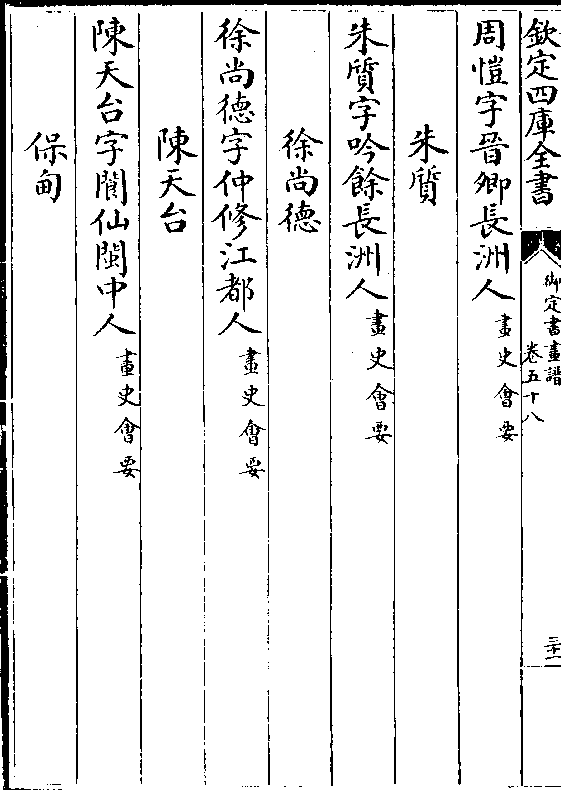 欽定四庫全書
御定書畫譜
卷五十八
三十一
周愷字晉卿長洲人畫史會要
朱質
朱質字吟餘長洲人畫史會要
徐尚德
徐尚德字仲修江都人畫史會要
陳天台
陳天台字閬仙閩中人畫史會要
保甸